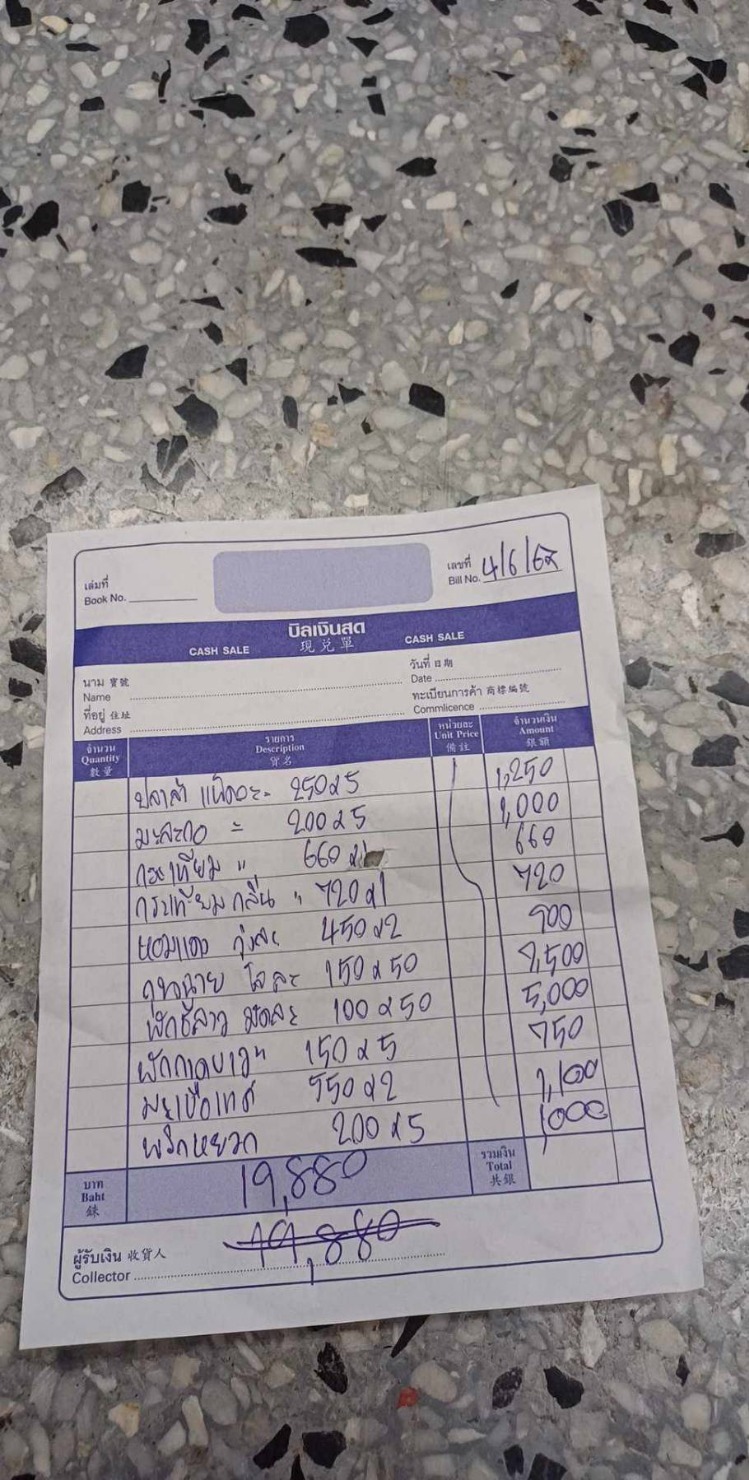 เล่มที่
Book No.
เลขที่
Bill No. 4/6/62
บิลเงินสด
CASH SALE 現兌單 CASH SALE
นาม 寶號
Name
วันที่ 日期
Date
ที่อยู่ 住址
Address
ทะเบียนการค้า 商標編號
Commlicence
จำนวน
Quantity
數量
รายการ
Description
貨名
หน่วยละ
Unit Price
備註
จำนวนเงิน
Amount
銀額
250x5 1,250
มะละกอ = 200x5 1,000
กระเทียม " 660x1 660
กระเทียมกลีบ " 720x1 720
หอมแดง ถุงละ 450x2 900
โลละ 150x50 7,500
ผักชีลาว มัดละ 100x50 5,000
ผักกาดขาว " 150x5 750
มะเขือเทศ 550x2 1,100
พริกหยวก 200x5 1000
บาท
Baht
銖
19,880
รวมเงิน
Total
共銀
ผู้รับเงิน 收貨人
Collector
19,880